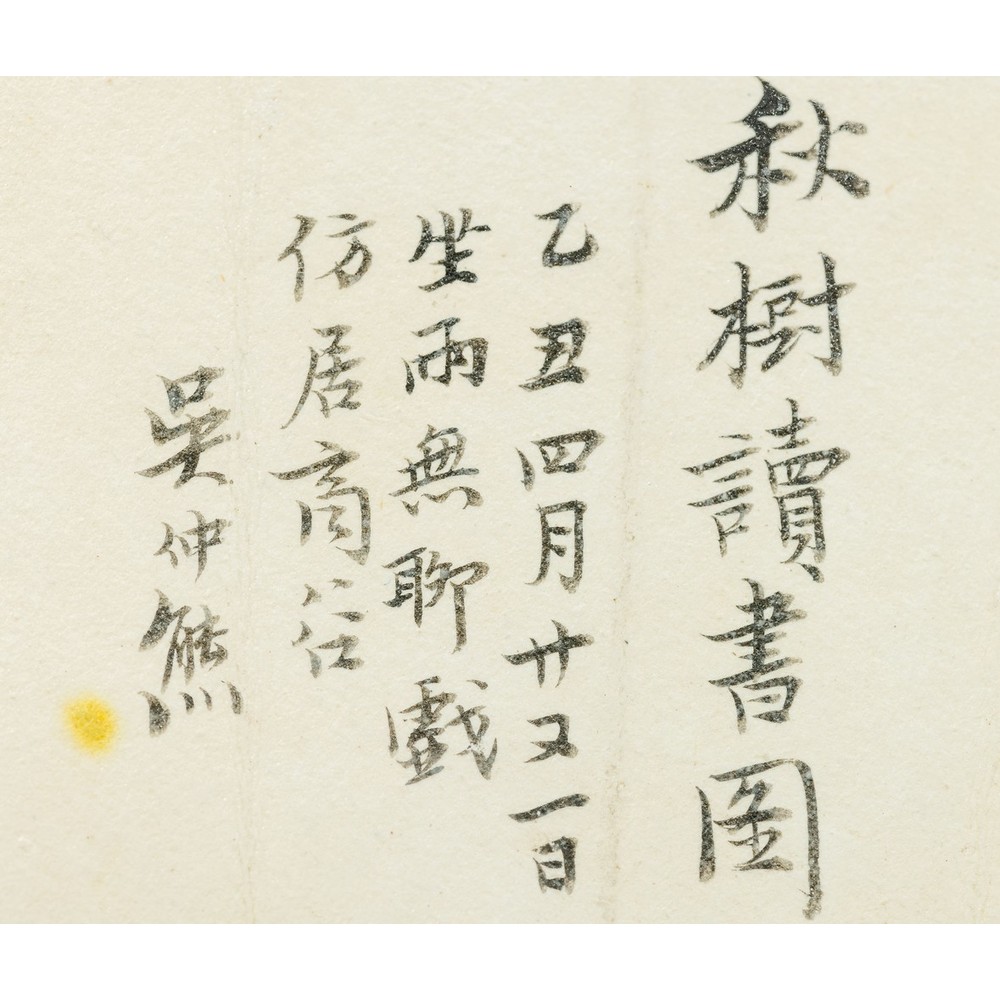 秋樹讀書圖
乙丑四月廿又一日
坐雨無聊戲
仿居商
吳仲熊